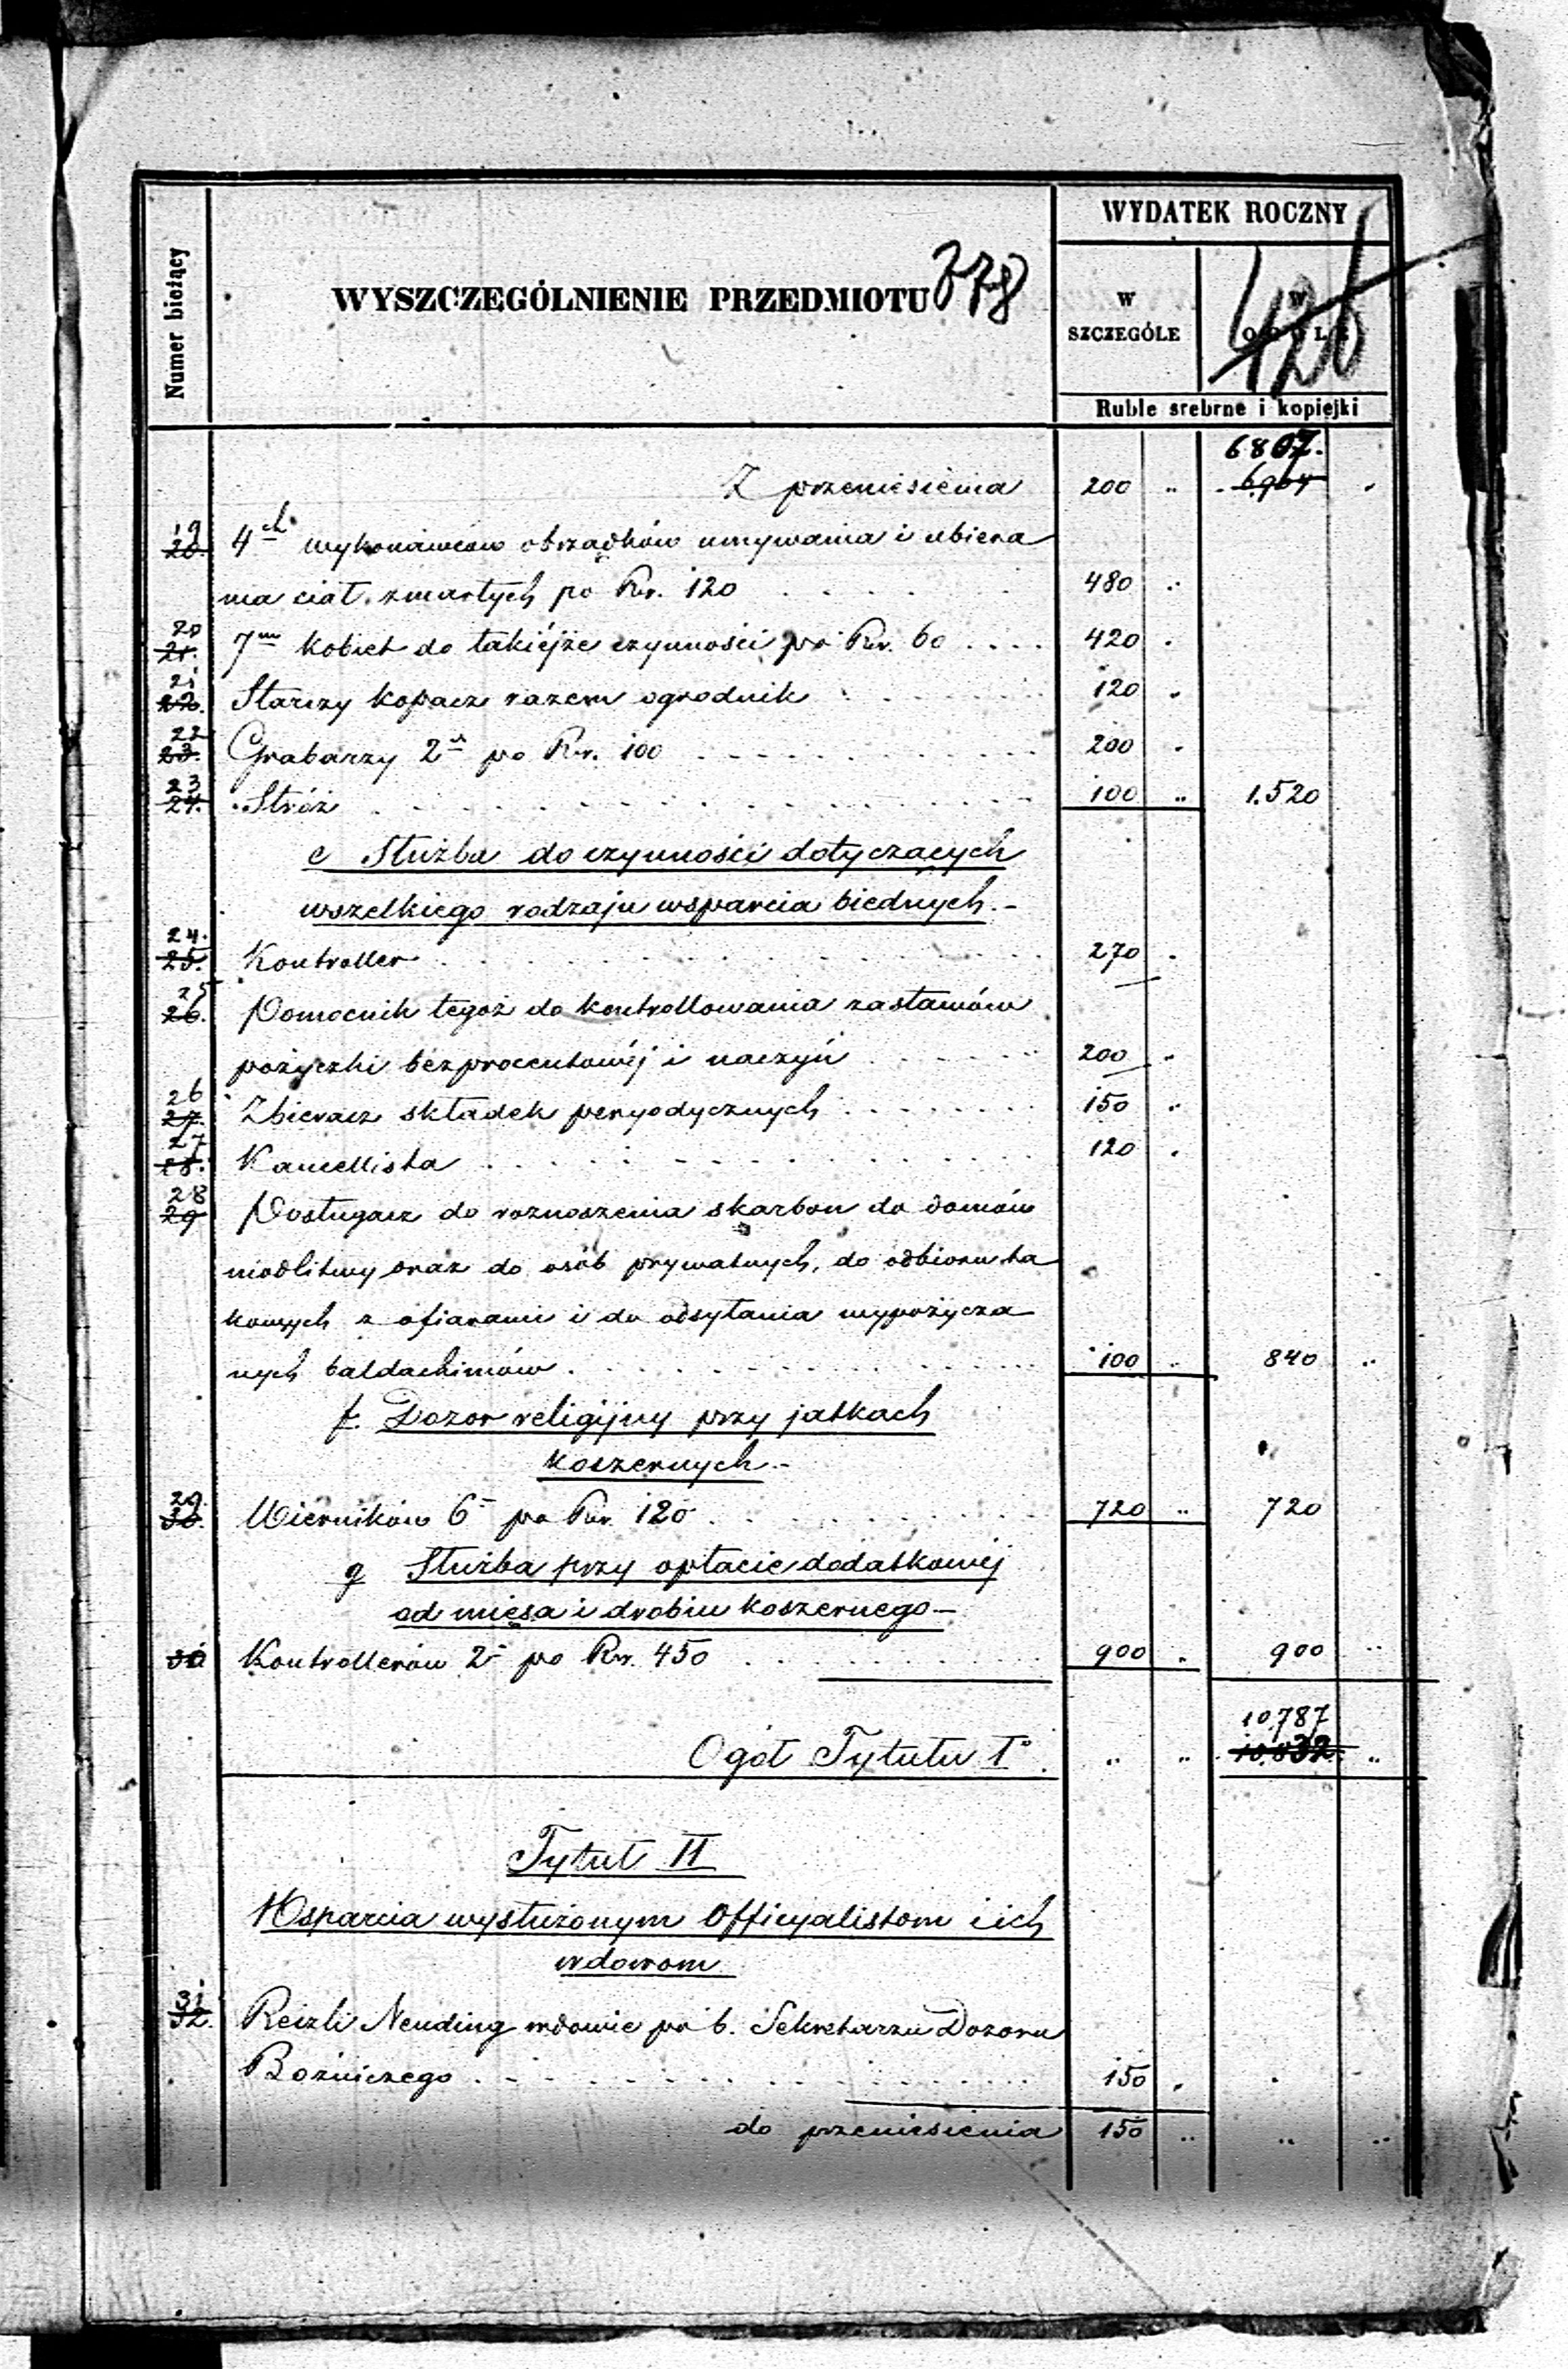 WYDATEK ROCZNY
Numer bieżący
WYSZCZEGÓLNIENIE PRZEDMIOTU 378
W SZCZEGÓLE
W OGÓLE
426
Ruble srebrne i kopiejki
6807.
Z przeniesienia 200 „ 6964 „
19 20. 4ch wykonawców obrządków umywania i ubiera
nia ciał zmarłych po Rsr. 120 . . . . 480 „
20 21. 7miu kobiet do takiéjże czynności po Rsr. 60 . . . . 420 „
21 22. Starszy kopacz razem ogrodnik . . . . 120 „
22 23. Grabarzy 2ch po Rsr. 100 . . . . 200 „
23 24. Stróż . . . . 100 „ 1.520
e Służba do czynności dotyczących
wszelkiego rodzaju wsparcia biednych.-
24. 25. Kontroller . . . . 270 „
25 26. Pomocnik tegoż do kontrollowania zastawów
pożyczki bezprocentowéj i naczyń . . . . 200 „
26 27. Zbieracz składek peryodycznych . . . . 150 „
27 28. Kancellista . . . . 120 „
28 29 Posługacz do roznoszenia skarbon do domów
modlitwy oraz do osób prywatnych, do odbioru ta
kowych z ofiarami i do odsyłania wypożycza
nych baldachimów . . . . 100 „ 840 „
f. Dozor religijny przy jatkach
koszernych.-
29. 30. Wierników 6 po Rsr. 120 . . . . 720 „ 720
g Służba przy opłacie dodatkowéj
od mięsa i drobiu koszernego-
30 Kontrollerów 2 po Rsr. 450 . . . . 900 „ 900 „
10,787
Ogół Tytułu I° „ „ 10.832 „
Tytuł II
Wsparcia wysłużonym Officyalistom i ich
wdowom
31 32. Reizli Neuding wdowie po b. Sekretarzu Dozoru
Bożniczego . . . . 150 „
do przeniesienia 150 „ „ „